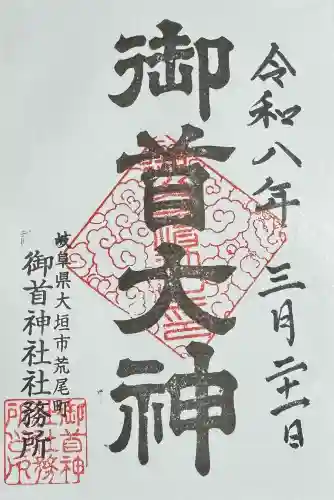 令和八年 三月二十一日
御首大神
岐阜県大垣市荒尾町
御首神社社務所
御首神
社社務
所之印